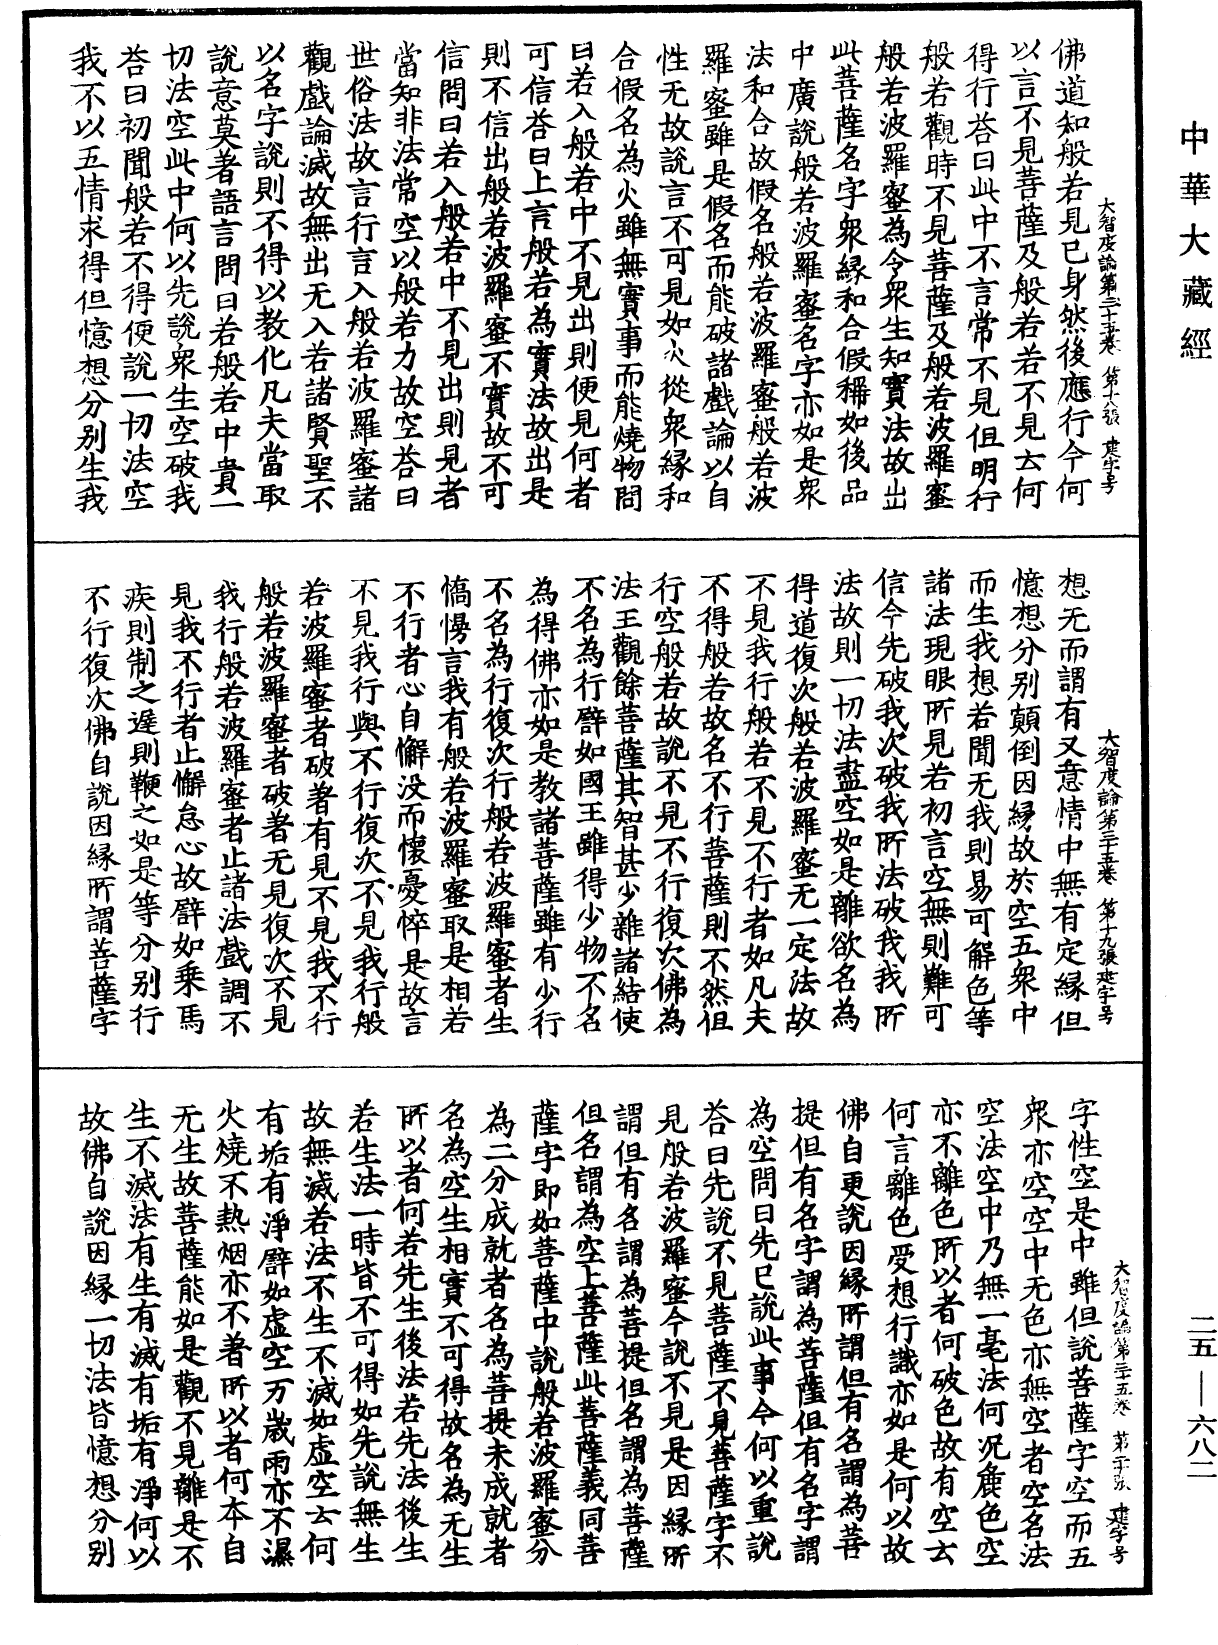 中華大藏經
二五—六八二
大智度論第三十五卷 第十八張 建字号
佛道知般若見已身然後應行今何
以言不見菩薩及般若若不見去何
得行荅曰此中不言常不見但明行
般若觀時不見菩薩及般若波羅蜜
般若波羅蜜為令衆生知實法故出
此菩薩名字衆緣和合假稱如後品
中廣說般若波羅蜜名字亦如是衆
法和合故假名般若波羅蜜般若波
羅蜜雖是假名而能破諸戲論以自
性无故說言不可見如火從衆緣和
合假名為火雖無實事而能燒物問
曰若入般若中不見出則便見何者
可信荅曰上言般若為實法故出是
則不信出般若波羅蜜不實故不可
信問曰若入般若中不見出則見者
當知非法常空以般若力故空荅曰
世俗法故言行言入般若波羅蜜諸
觀戲論滅故無出无入若諸賢聖不
以名字說則不得以教化凡夫當取
說意莫著語言問曰若般若中貴一
切法空此中何以先說衆生空破我
荅曰初聞般若不得便說一切法空
我不以五情求得但憶想分別生我
大智度論第三十五卷 第十九張 建字号
想无而謂有又意情中無有定緣但
憶想分別顛倒因緣故於空五衆中
而生我想若聞无我則易可解色等
諸法現眼所見若初言空無則難可
信今先破我次破我所法破我我所
法故則一切法盡空如是離欲名為
得道復次般若波羅蜜无一定法故
不見我行般若不見不行者如凡夫
不得般若故名不行菩薩則不然但
行空般若故說不見不行復次佛為
法王觀餘菩薩其智甚少雜諸結使
不名為行譬如國王雖得少物不名
為得佛亦如是教諸菩薩雖有少行
不名為行復次行般若波羅蜜者生
憍慢言我有般若波羅蜜取是相若
不行者心自懈没而懷憂悴是故言
不見我行與不行復次不見我行般
若波羅蜜者破著有見不見我不行
般若波羅蜜者破著无見復次不見
我行般若波羅蜜者止諸法戲調不
見我不行者止懈怠心故譬如乗馬
疾則制之遲則鞭之如是等分別行
不行復次佛自說因緣所謂菩薩字
大智度論第三十五卷 第二十張 建字号
字性空是中雖但說菩薩字空而五
衆亦空空中无色亦無空者空名法
空法空中乃無一毫法何況麁色空
亦不離色所以者何破色故有空云
何言離色受想行識亦如是何以故
佛自更說因緣所謂但有名謂為菩
提但有名字謂為菩薩但有名字謂
為空問曰先已說此事今何以重說
荅曰先說不見菩薩不見菩薩字不
見般若波羅蜜今說不見是因緣所
謂但有名謂為菩提但名謂為菩薩
但名謂為空上菩薩此菩薩義同菩
薩字即如菩薩中說般若波羅蜜分
為二分成就者名為菩提未成就者
名為空生相實不可得故名為无生
所以者何若先生後法若先法後生
若生法一時皆不可得如先說無生
故無滅若法不生不滅如虚空去何
有垢有淨譬如虚空万歲雨亦不濕
火燒不熱烟亦不著所以者何本自
无生故菩薩能如是觀不見離是不
生不滅法有生有滅有垢有淨何以
故佛自說因緣一切法皆憶想分別